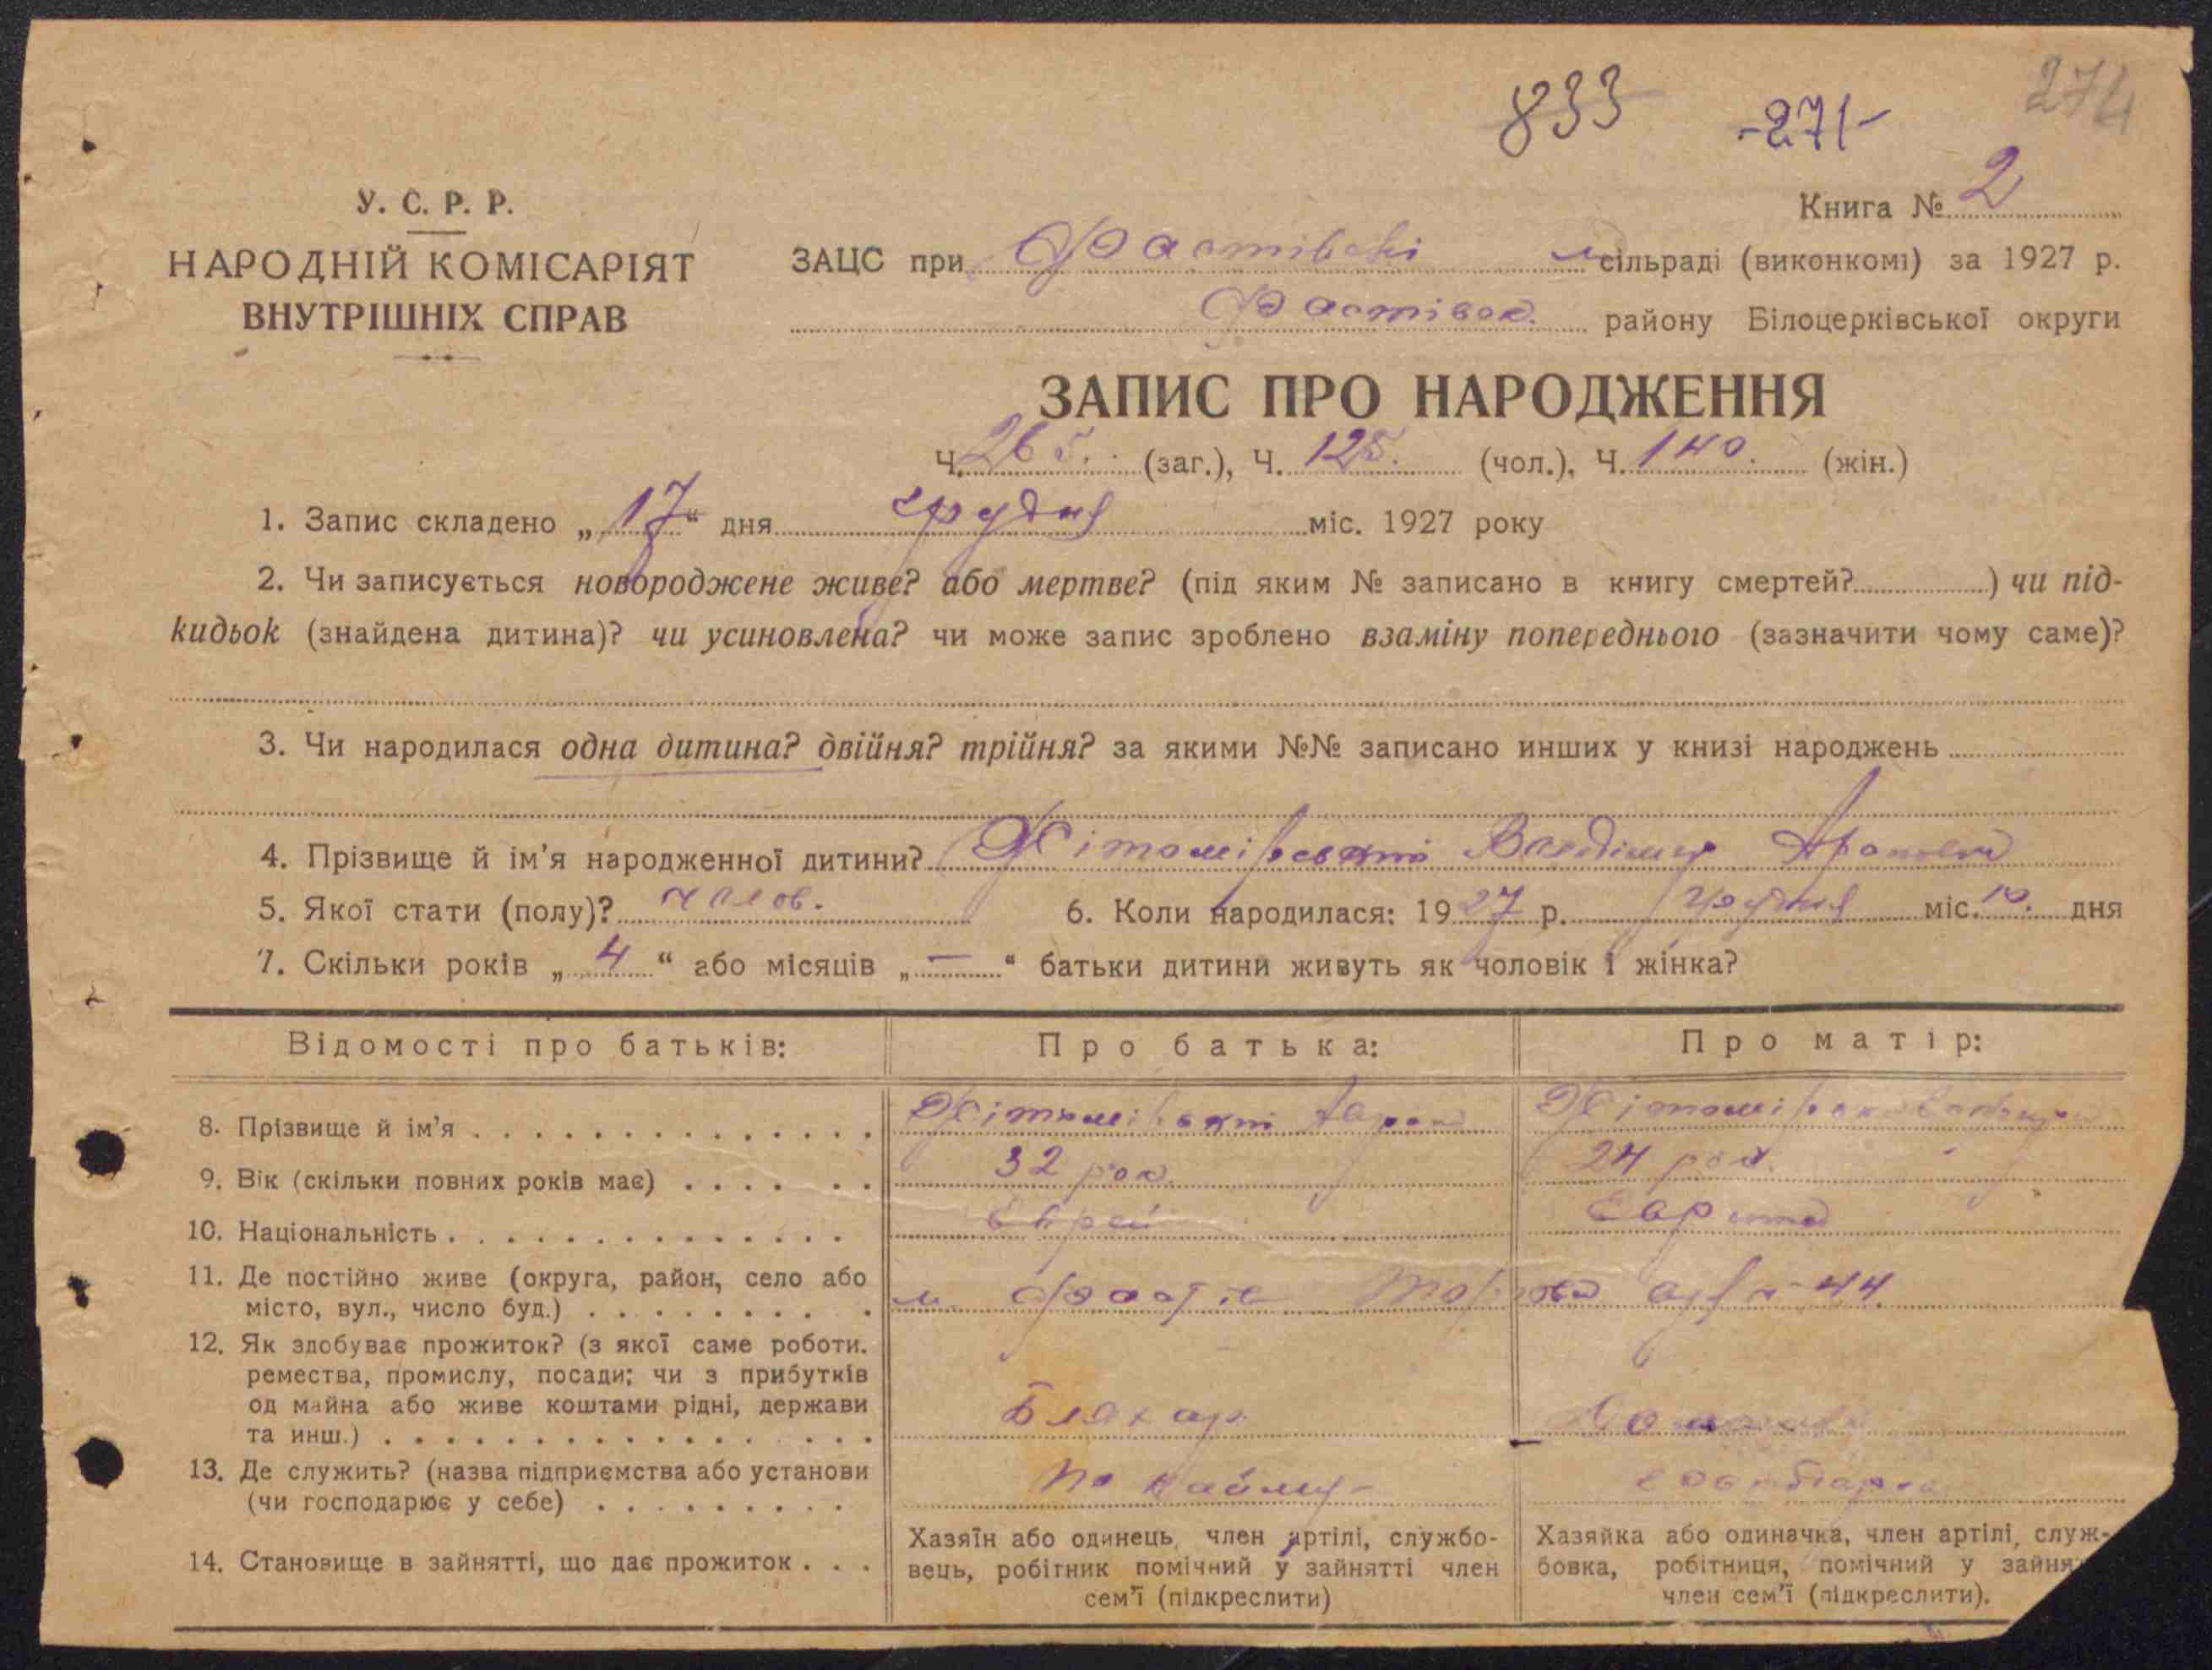 833 -271- 274
У. С. Р. Р.
НАРОДНІЙ КОМІСАРІЯТ
ВНУТРІШНІХ СПРАВ
Книга № 2
ЗАЦС при Фастівські м сільраді (виконкомі) за 1927 р.
Фастівск. району Білоцерківської округи
ЗАПИС ПРО НАРОДЖЕННЯ
Ч. 265. (заг.), Ч. 125. (чол.), Ч. 140. (жін.)
1. Запис складено „17“ дня грудня міс. 1927 року
2. Чи записується новороджене живе? або мертве? (під яким № записано в книгу смертей?) чи під-
кидьок (знайдена дитина)? чи усиновлена? чи може запис зроблено взаміну попереднього (зазначити чому саме)?
3. Чи народилася одна дитина? двійня? трійня? за якими №№ записано инших у книзі народжень
4. Прізвище й ім'я народженної дитини? Жітомірський Владімир
5. Якої стати (полу)? чолов. 6. Коли народилася: 1927 р. грудня міс. 10. дня
7. Скільки років „4“ або місяців „—“ батьки дитини живуть як чоловік і жінка?
Відомості про батьків: Про батька: Про матір:
8. Прізвище й ім'я Жітомірський Аарон
9. Вік (скільки повних років має) 32 рок. 24 рок.
10. Національність Еврей Еврейка
11. Де постійно живе (округа, район, село або
місто, вул., число буд.) м. Фастів 44
12. Як здобуває прожиток? (з якої саме роботи.
ремества, промислу, посади; чи з прибутків
од майна або живе коштами рідні, держави
та инш.) Бляхар
13. Де служить? (назва підприємства або установи
(чи господарює у себе) по найму
14. Становище в зайнятті, що дає прожиток
Хазяїн або одинець, член артілі, службо-
вець, робітник помічний у зайнятті член
сем'ї (підкреслити)
Хазяйка або одиначка, член артілі, служ-
бовка, робітниця, помічний у зайня
член сем'ї (підкреслити).